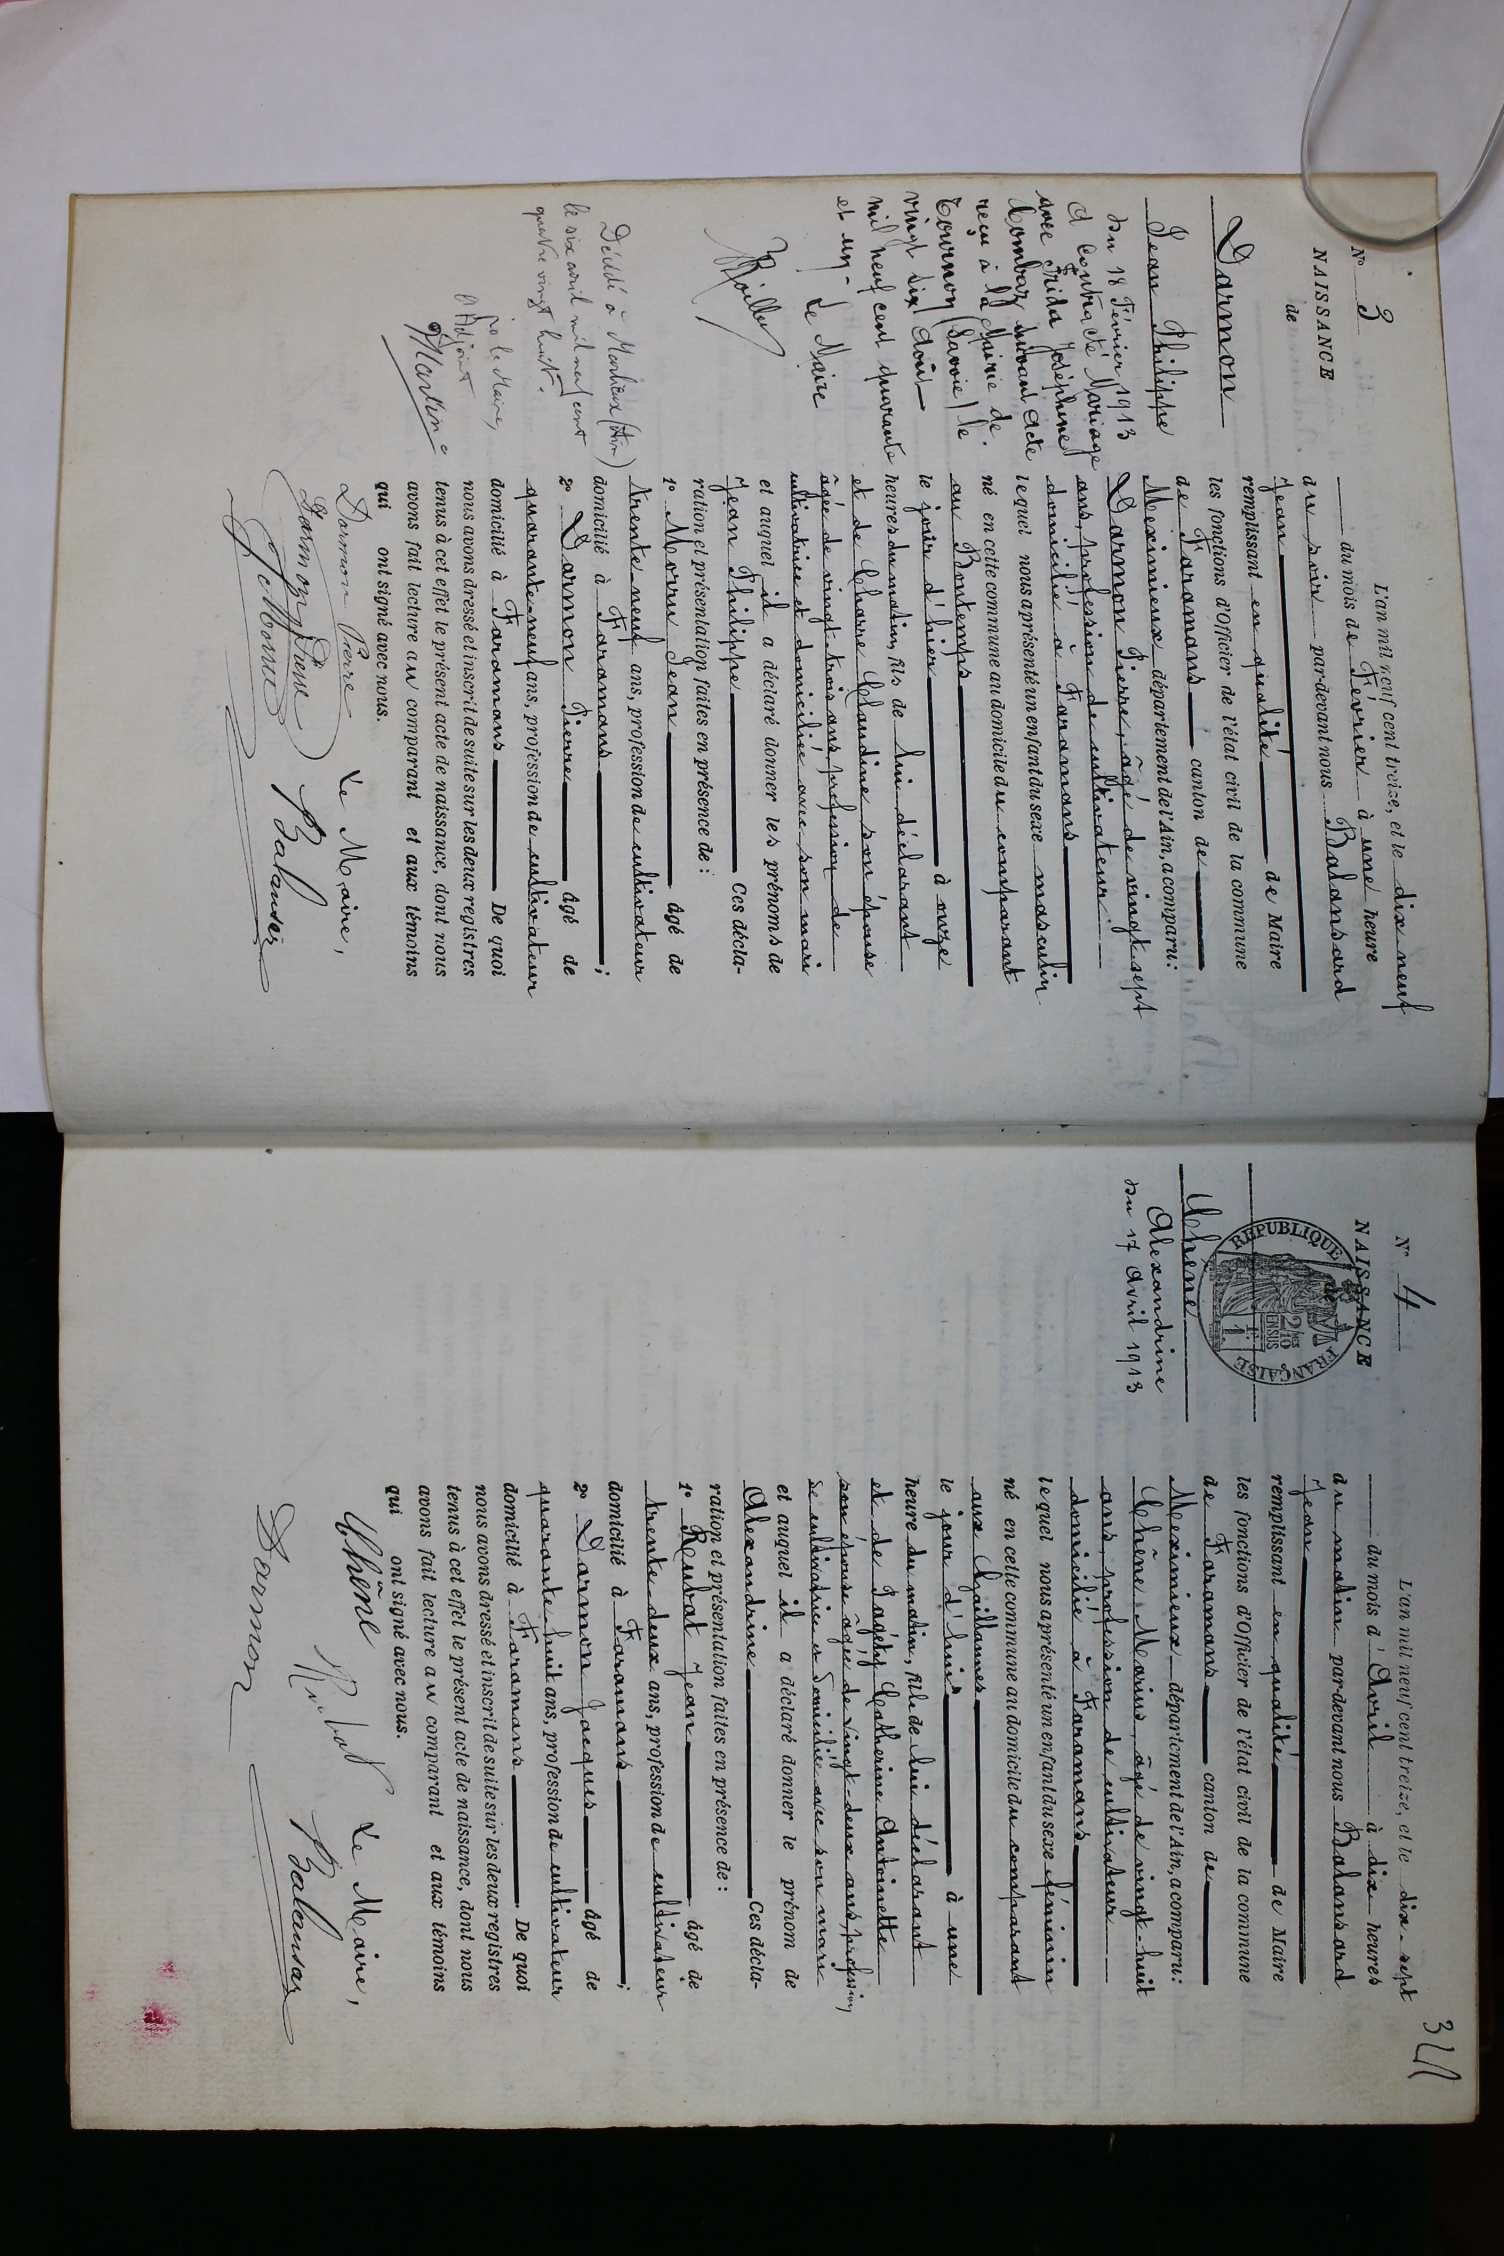 N° 3
NAISSANCE
de
Darmon
Jean Philippe
du 18 Février 1913
A contracté Mariage
avec Frida Joséphine
Combaz suivant acte
reçu à la Mairie de
Tournon (Savoie) le
vingt six Août
mil neuf cent quarante
et un - Le Maire
Décédé à Marlieux (Ain)
le six avril mil neuf cent
quatre vingt huit.
P. le Maire,
l'Adjoint
L'an mil neuf cent treize, et le dix neuf
du mois de Février à une heure
du soir par-devant nous Balansard
Jean
remplissant en qualité de Maire
les fonctions d'Officier de l'état civil de la commune
de Faramans canton de
Meximieux département de l'Ain, a comparu :
Darmon Pierre, âgé de vingt sept
ans, profession de cultivateur
domicilié à Faramans
lequel nous a présenté un enfant du sexe masculin
né en cette commune au domicile du comparant
au Bontemps
le jour d'hier à onze
heures du matin, fils de lui déclarant
et de Charre Claudine son épouse
âgée de vingt-trois ans, profession de
cultivatrice et domiciliée avec son mari
et auquel il a déclaré donner les prénoms de
Jean Philippe Ces décla-
ration et présentation faites en présence de :
1° Morru Jean âgé de
trente-neuf ans, profession de cultivateur
domicilié à Faramans ;
2° Darmon Pierre âgé de
quarante-neuf ans, profession de cultivateur
domicilié à Faramans De quoi
nous avons dressé et inscrit de suite sur les deux registres
tenus à cet effet le présent acte de naissance, dont nous
avons fait lecture au comparant et aux témoins
qui ont signé avec nous.
Darmon Pierre Le Maire,
Darmon Pierre Balansard
Morru
341
N° 4
NAISSANCE
de
REPUBLIQUE FRANÇAISE
2/10 EN SUS
Chêne
Alexandrine
du 17 Avril 1913
L'an mil neuf cent treize, et le dix-sept
du mois d'Avril à dix heures
du matin par-devant nous Balansard
Jean
remplissant en qualité de Maire
les fonctions d'Officier de l'état civil de la commune
de Faramans canton de
Meximieux département de l'Ain, a comparu :
Chêne Marius, âgé de vingt-huit
ans, profession de cultivateur
domicilié à Faramans
lequel nous a présenté un enfant du sexe féminin
né en cette commune au domicile du comparant
aux Chaillannes
le jour d'hui à une
heure du matin, fille de lui déclarant
et de Catherine Antoinette
son épouse âgée de vingt-deux ans, profession
de cultivatrice et domiciliée avec son mari
et auquel il a déclaré donner le prénom de
Alexandrine Ces décla-
ration et présentation faites en présence de :
1° Rubat Jean âgé de
trente-deux ans, profession de cultivateur
domicilié à Faramans ;
2° Darmon Jacques âgé de
quarante-huit ans, profession de cultivateur
domicilié à Faramans De quoi
nous avons dressé et inscrit de suite sur les deux registres
tenus à cet effet le présent acte de naissance, dont nous
avons fait lecture au comparant et aux témoins
qui ont signé avec nous.
Chêne Le Maire,
Rubat Balansard
Darmon